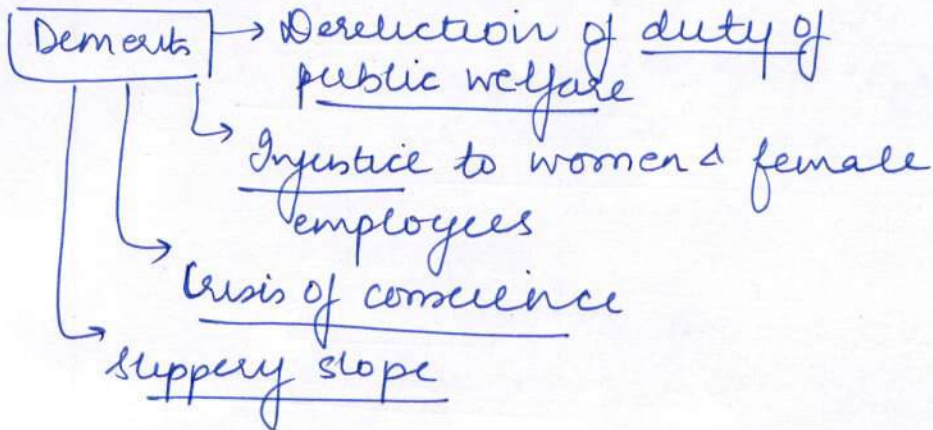 Demerits → Dereliction of duty of
public welfare
Injustice to women & female
employees
Crisis of conscience
Slippery slope